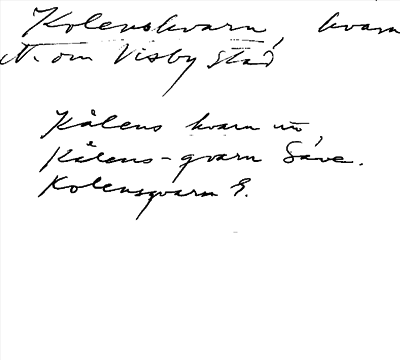 Kolenskvarn, kvarn
N. om Visby stad
Kålens kvarn
Kålens-qvarn Säve.
Kolensqvarn